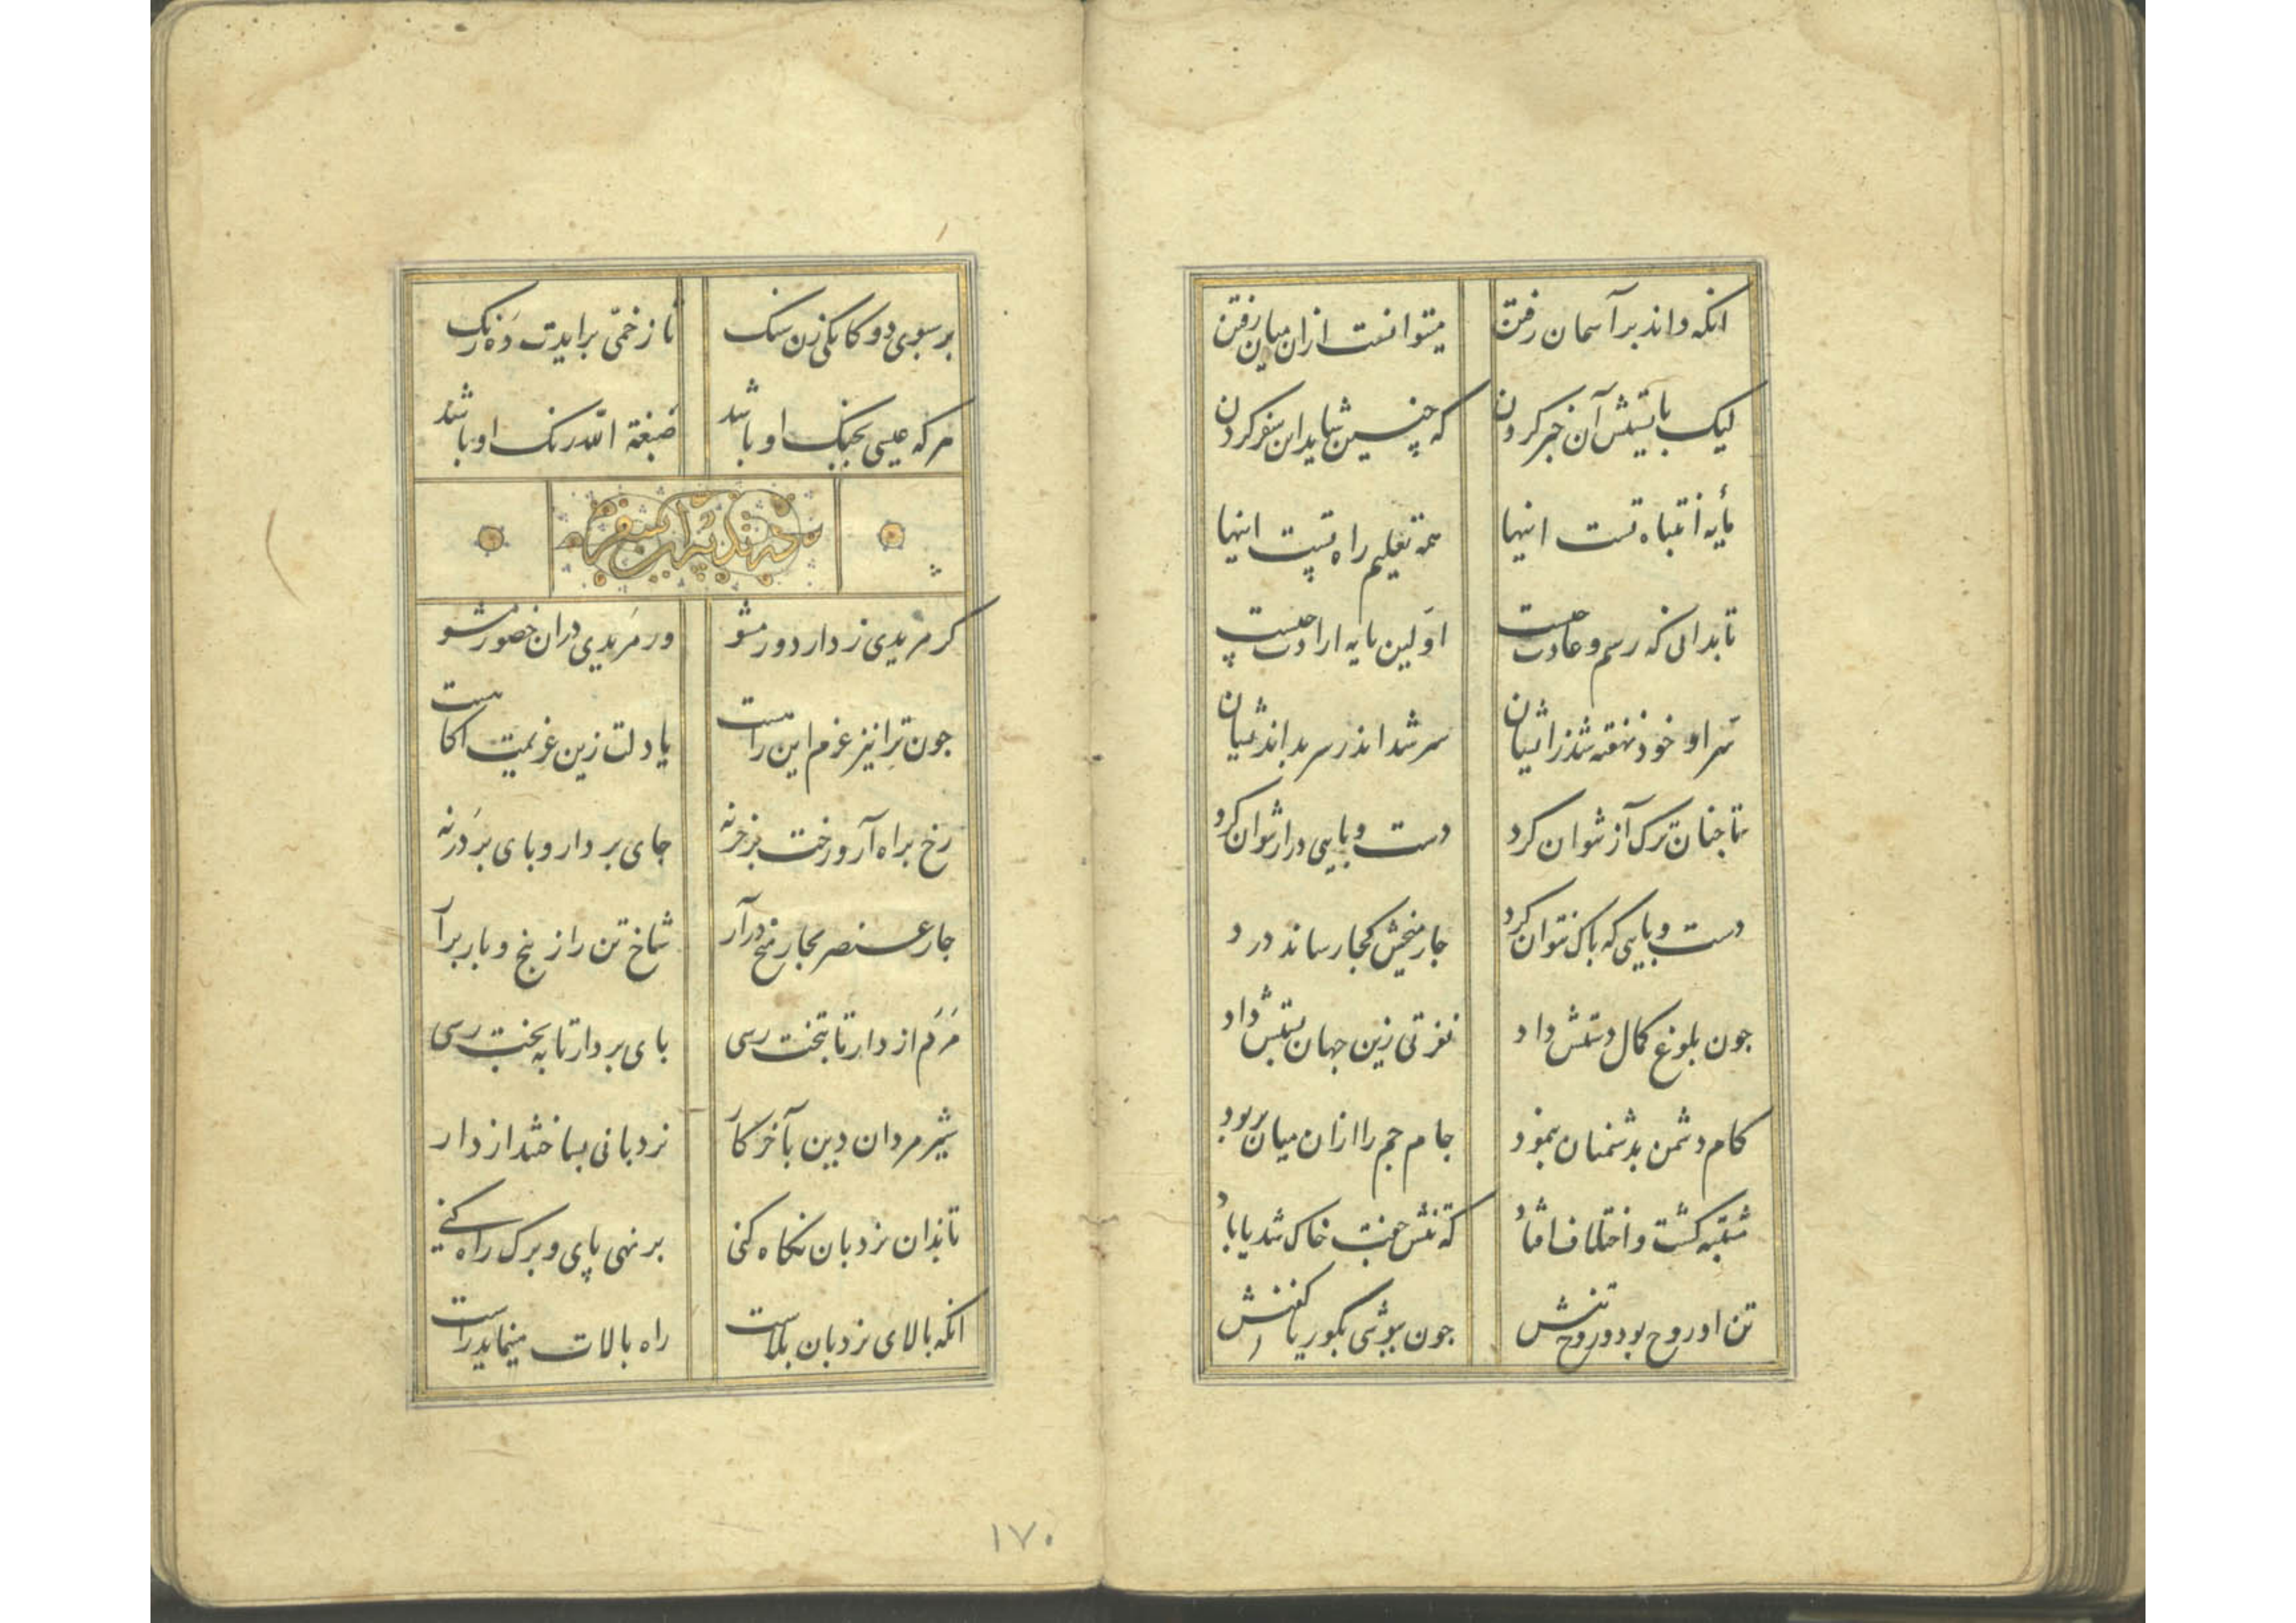 انکه داند بر آسمان رفتن میتوانست ازان میان رفتن
لیک بایستش آن خبر کردن که چنین شاید این سفر کردن
مایه انتباه تست اینها همه تعلیم راه تست اینها
تا بدانی که رسم و عادت چیست اولین مایه ارادت چیست
سر او خود نهفته شد زایشان سر شد اندر سر بداندیشان
تا جنان ترک آز شوان کرد دست و بایی دراز شوان کرد
دست و بایی که باک نتوان کرد جار میخش کجا رساند درد
جون بلوغ کمال دستش داد نفرتی زین جهان بستش داد
کام دشمن بدشمنان بنمود جام جم را ازان میان بربود
مشتبه کشت و اختلاف افتاد که تنش جفت خاک شد یا باد
تن او روح بود و روح تنش جون ببوشی بکوریا کفنش
بر سبوی دو کانکی زن سنک تا ز خمی برایدت ده رنک
هر که عیسی بجنک او باشد صبغة الله رنک او باشد
کر مریدی ز دار دور مشو ور مریدی دران حضور مشو
جون ترا نیز عزم این راهست یا دلت زین عزیمت اکاهست
رخ براه آر و رخت بر خر نه جای بردار و بای بر در نه
جار عنصر بجار میخ درآر شاخ تن را ز بیخ و بار برآر
مرم از دار تا بتخت رسی بای بر دار تا به بخت رسی
شیر مردان دین بآخر کار نردبانی بساختند از دار
تا بدان نردبان نکاه کنی بر نهی پای و برک راه کنی
انکه بالای نردبان بلاست راه بالات مینماید راست
۱۷۰